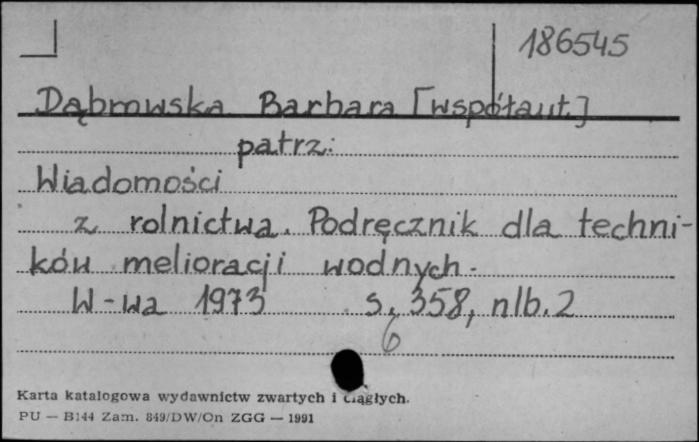 186545
Dąbrowska Barbara [współaut.]
patrz:
Wiadomości
z rolnictwa. Podręcznik dla techni-
ków melioracji wodnych.
W-wa 1973 s. 358, nlb. 2
6
Karta katalogowa wydawnictw zwartych i ciągłych.
PU — B144 Zam. 849/DW/On ZGG — 1991